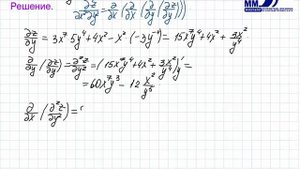 Решение.
ММ
∂z/∂y = 3x⁷ 5y⁴ + 4x² - x² (-3y⁻⁴) = 15x⁷y⁴ + 4x² + 3x²/y⁴
∂/∂y (∂z/∂y) = ∂²z/∂y² = (15x⁷y⁴ + 4x² + 3x²/y⁴)'y =
= 60x⁷y³ - 12 x²/y⁵
∂/∂x (∂²z/∂y²) =